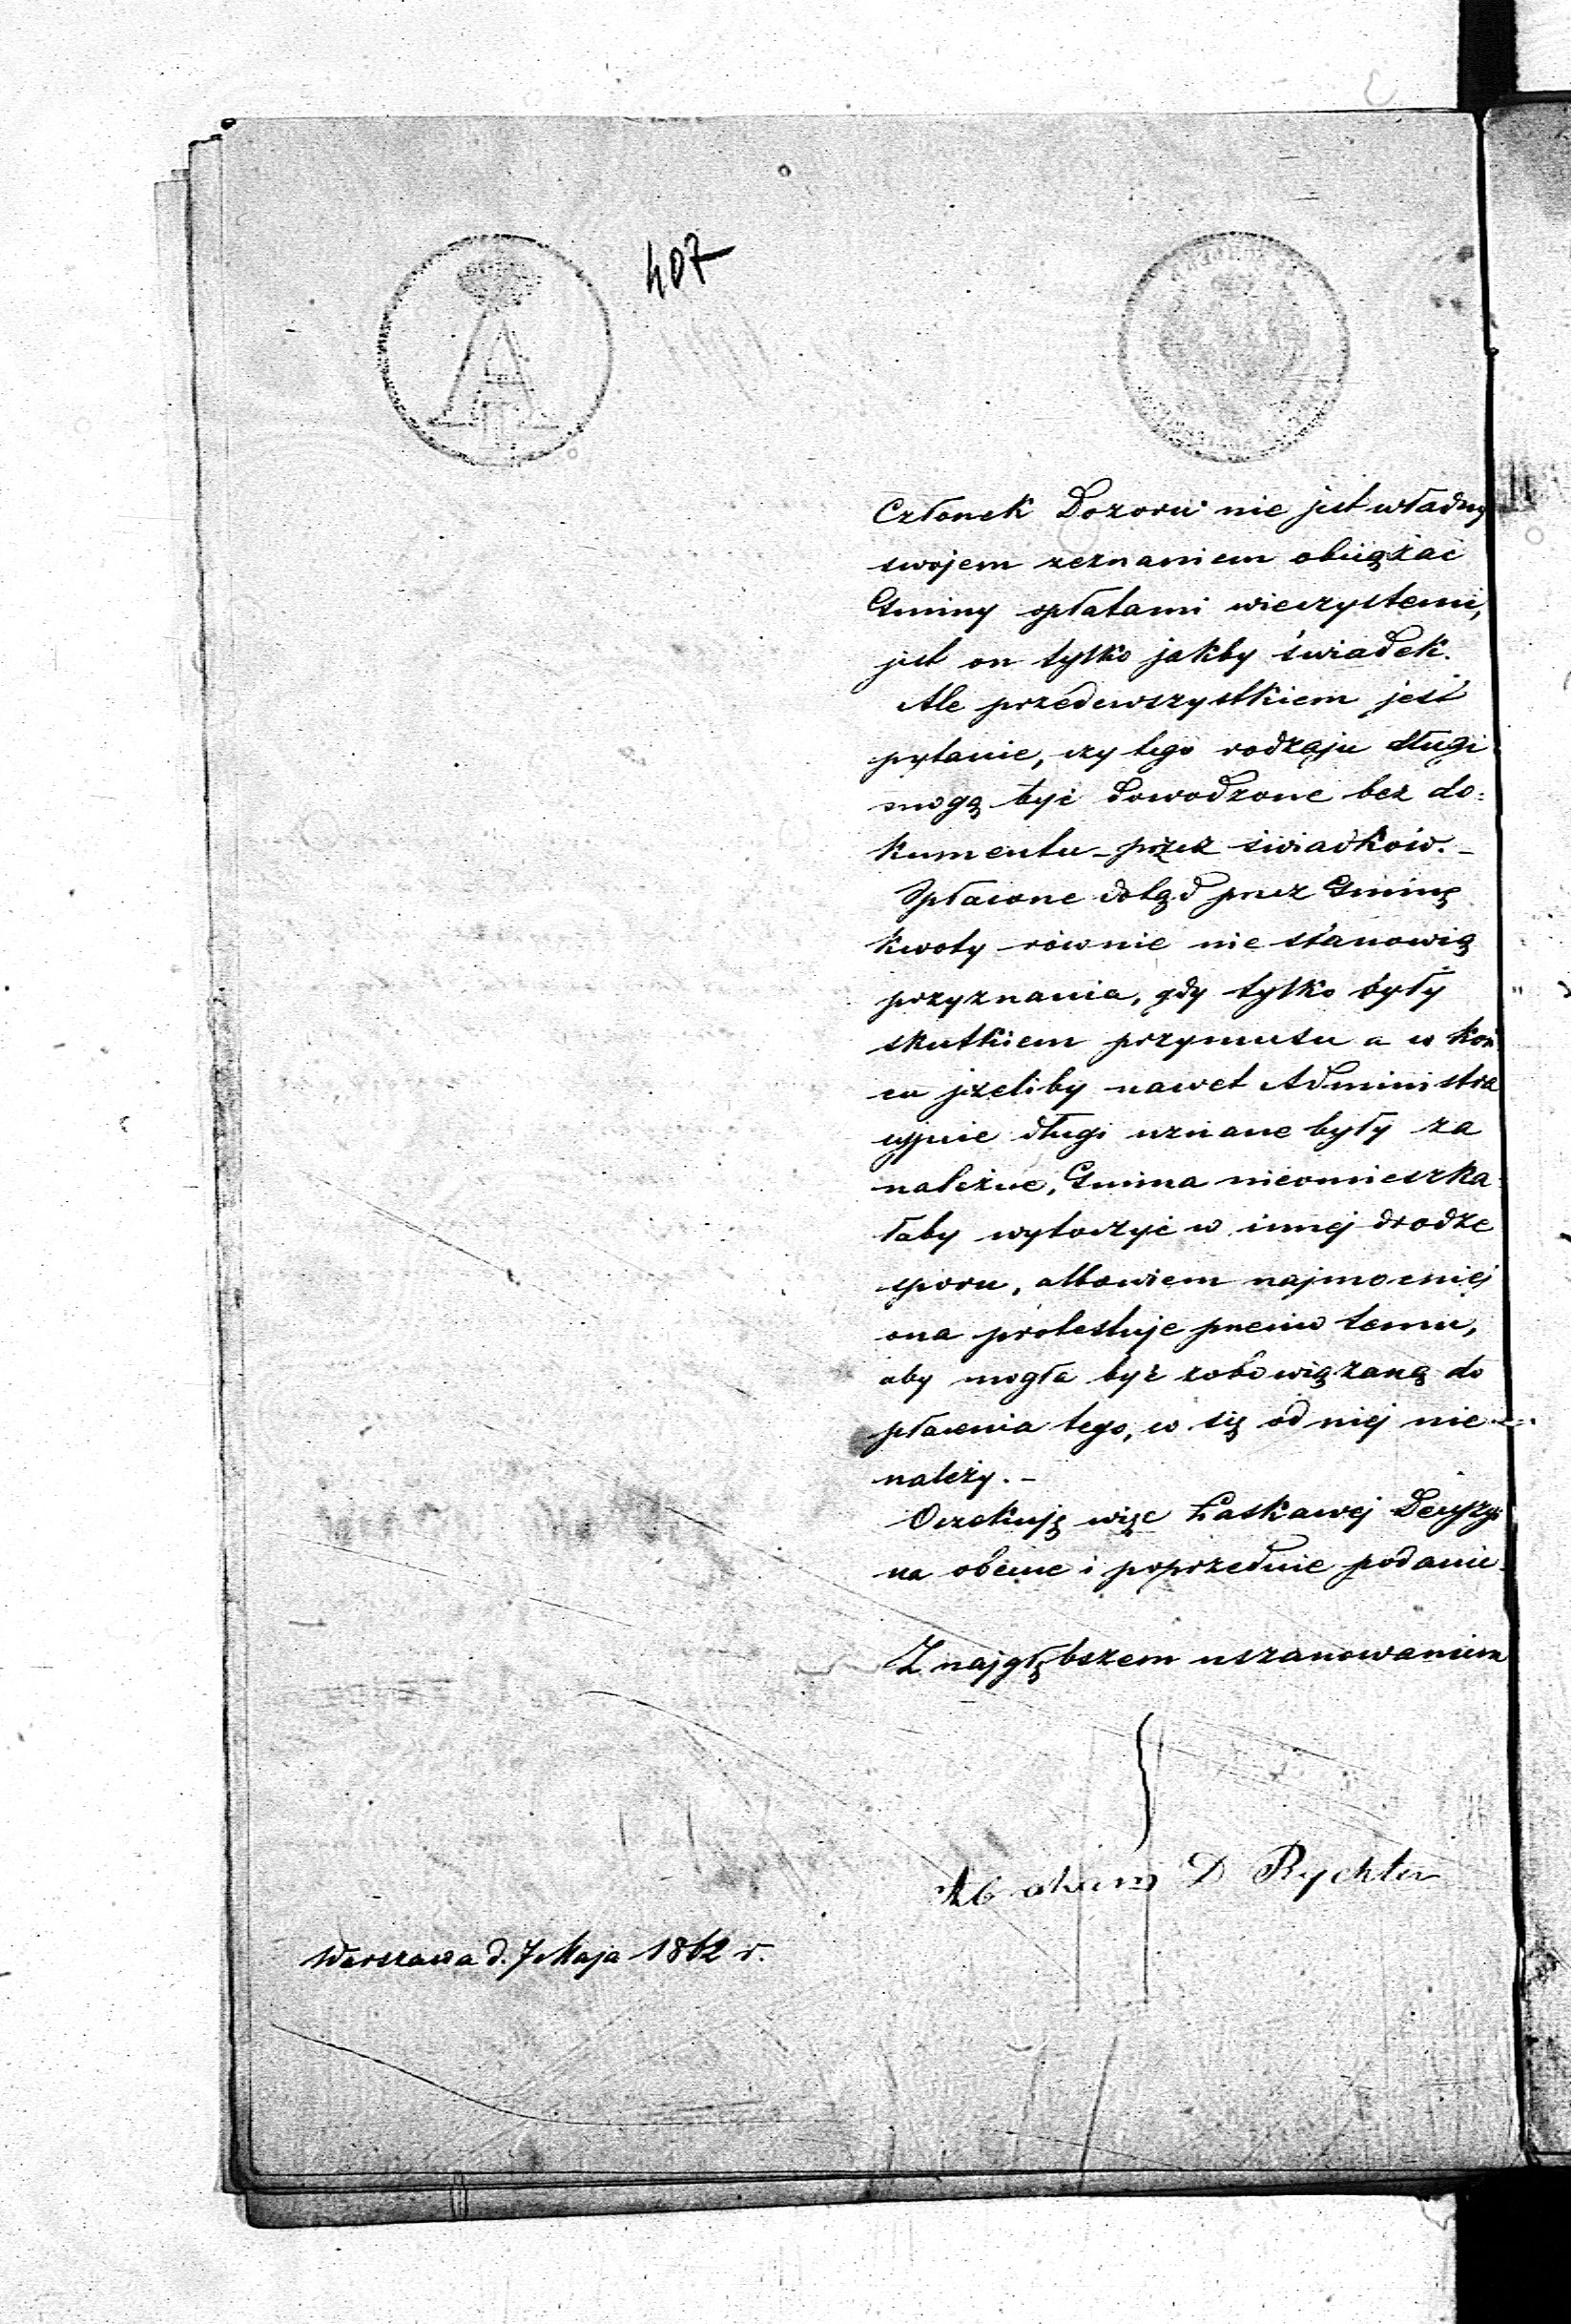 407
Członek Dozoru nie jest władny
swojem zeznaniem obciążać
Gminy opłatami wieczystemi,
jest on tylko jakby świadek.
Ale przedewszystkiem jest
pytanie, czy tego rodzaju długi
mogą być dowodzone bez do=
kumentu – przez świadków. –
Spłacone dotąd przez Gminę
kwoty równie nie stanowią
przyznania, gdy tylko były
skutkiem przymusu a w koń
cu jeżeliby nawet Administra
cyjnie długi uznane były za
należne, Gmina nieomieszka
łaby wytoczyć w innej drodze
sporu, albowiem najmocniej
ona protestuje przeciw temu,
aby mogła być zobowiązaną do
płacenia tego, co się od niej nie
należy. –
Oczekuję więc Łaskawej Decyzyi
na obecne i poprzednie podanie.
Z najgłębszem uszanowaniem
Abraham D Rychter
Warszawa d. 7 Maja 1862 r.